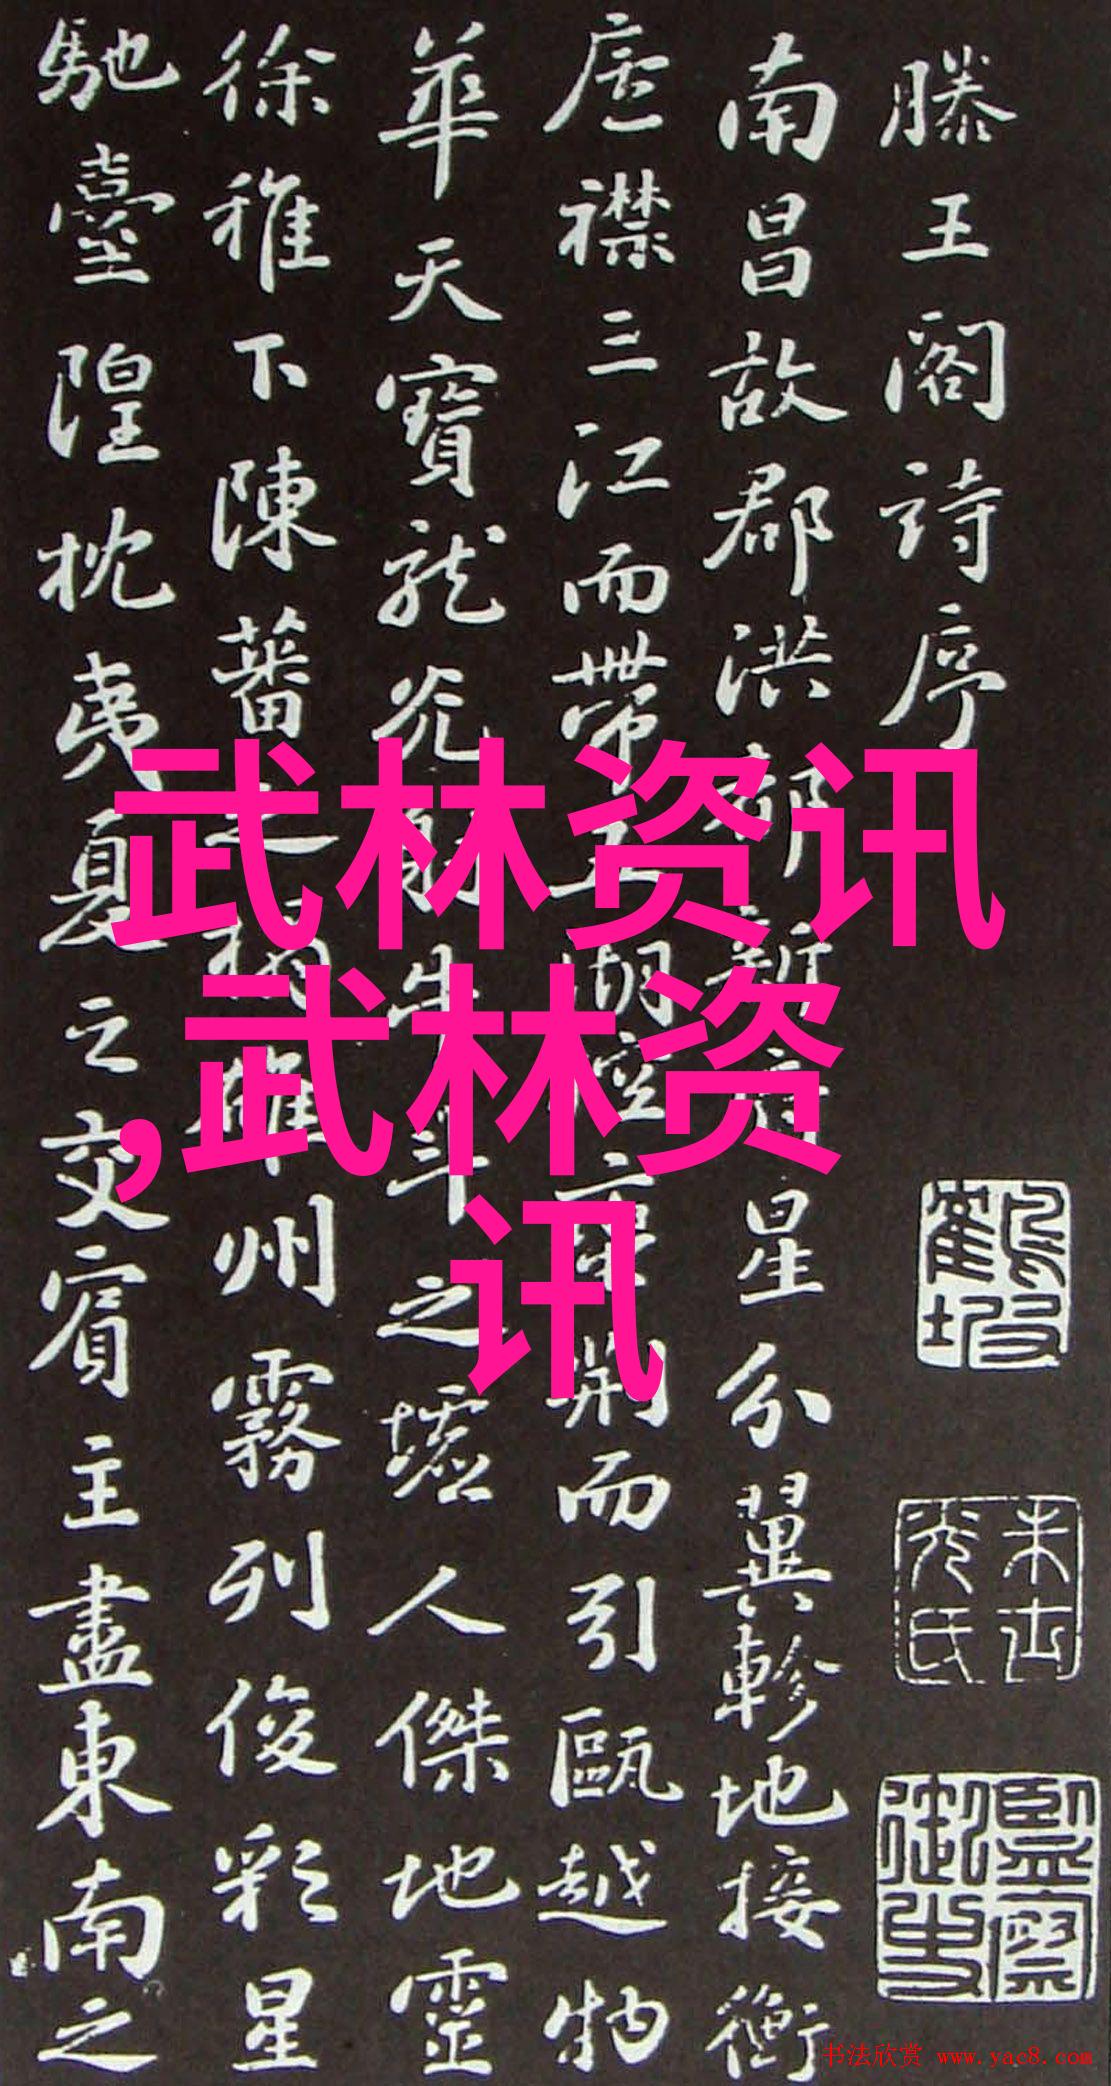 滕王阁詩序
南昌故郡洪都新府星分翼軫地接衡
廬襟三江而帶五湖控蠻荆而引甌越物
華天寶龍光射牛斗之墟人傑地靈
徐稚下陳蕃之榻雄州霧列俊彩星
馳臺隍枕夷夏之交賓主盡東南之
武林资讯
,武林资
讯
书法欣赏 www.yac8.com